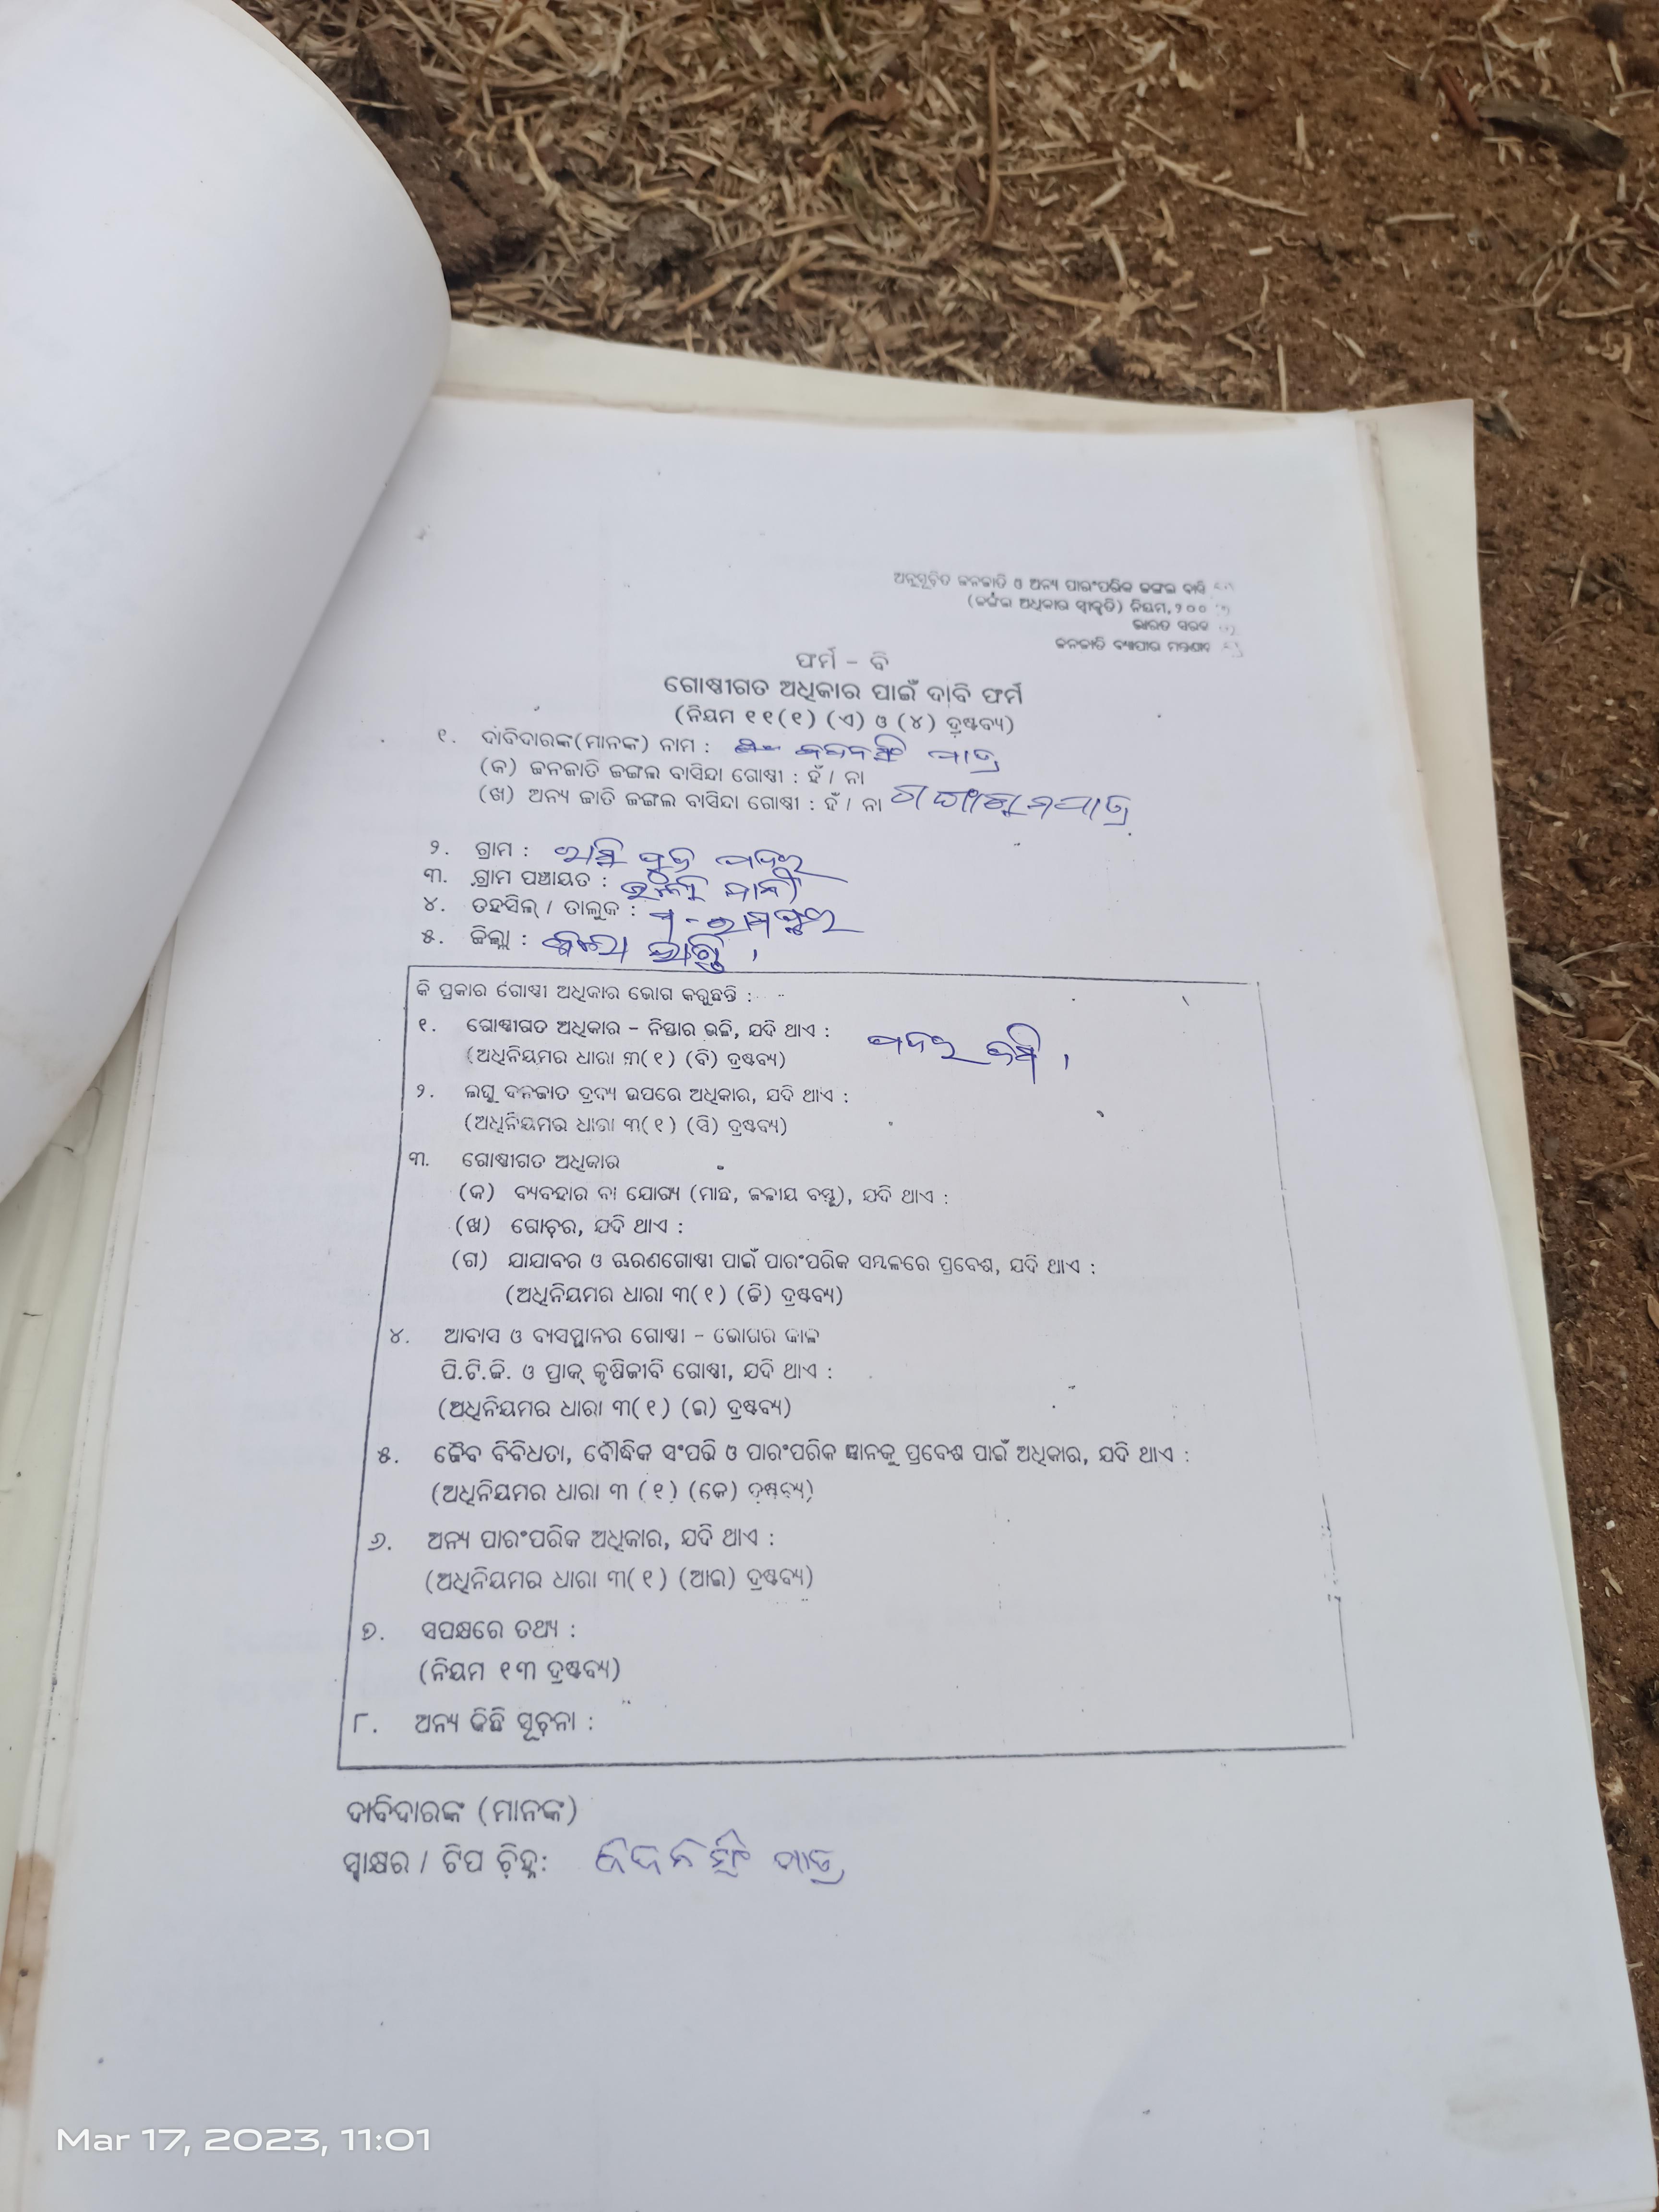 ଅନୁସୂଚିତ ଜନଜାତି ଓ ଅନ୍ୟ ପାରଂପରିକ ଜଙ୍ଗଲ ବାସି
(ଜଙ୍ଗଲ ଅଧିକାର ସ୍ୱୀକୃତି) ନିୟମ, ୨୦୦
ଭାରତ ସରକ
ଜନଜାତି ବ୍ୟାପାର
ଫର୍ମ - ବି
ଗୋଷ୍ଠୀଗତ ଅଧିକାର ପାଇଁ ଦାବି ଫର୍ମ
(ନିୟମ ୧୧(୧) (ଏ) ଓ (୪) ଦ୍ରଷ୍ଟବ୍ୟ)
୧. ଦାବିଦାରଙ୍କ(ମାନଙ୍କ) ନାମ : ପାତ୍ର
(କ) ଜନଜାତି ଜଙ୍ଗଲ ବାସିନ୍ଦା ଗୋଷ୍ଠୀ : ହଁ / ନା
(ଖ) ଅନ୍ୟ ଜାତି ଜଙ୍ଗଲ ବାସିନ୍ଦା ଗୋଷ୍ଠୀ : ହଁ / ନା
୨. ଗ୍ରାମ :
୩. ଗ୍ରାମ ପଞ୍ଚାୟତ :
୪. ତହସିଲ୍ / ତାଲୁକ :
୫. ଜିଲ୍ଲା :
କି ପ୍ରକାର ଗୋଷ୍ଠୀ ଅଧିକାର ଭୋଗ କରୁଛନ୍ତି :
୧. ଗୋଷ୍ଠୀଗତ ଅଧିକାର - ନିସ୍ତାର ଭଳି, ଯଦି ଥାଏ :
(ଅଧିନିୟମର ଧାରା ୩(୧) (ବି) ଦ୍ରଷ୍ଟବ୍ୟ)
୨. ଲଘୁ ବନଜାତ ଦ୍ରବ୍ୟ ଉପରେ ଅଧିକାର, ଯଦି ଥାଏ :
(ଅଧିନିୟମର ଧାରା ୩(୧) (ସି) ଦ୍ରଷ୍ଟବ୍ୟ)
୩. ଗୋଷ୍ଠୀଗତ ଅଧିକାର
(କ) ବ୍ୟବହାର ବା ଯୋଗ୍ୟ (ମାଛ, ଜଳୀୟ ବସ୍ତୁ), ଯଦି ଥାଏ :
(ଖ) ଗୋଚର, ଯଦି ଥାଏ :
(ଗ) ଯାଯାବର ଓ ଚାରଣଗୋଷ୍ଠୀ ପାଇଁ ପାରଂପରିକ ସମ୍ବଳରେ ପ୍ରବେଶ, ଯଦି ଥାଏ :
(ଅଧିନିୟମର ଧାରା ୩(୧) (ଡି) ଦ୍ରଷ୍ଟବ୍ୟ)
୪. ଆବାସ ଓ ବାସସ୍ଥାନର ଗୋଷ୍ଠୀ - ଭୋଗର କାଳ
ପି.ଟି.ଜି. ଓ ପ୍ରାକ୍ କୃଷିଜୀବି ଗୋଷ୍ଠୀ, ଯଦି ଥାଏ :
(ଅଧିନିୟମର ଧାରା ୩(୧) (ଇ) ଦ୍ରଷ୍ଟବ୍ୟ)
୫. ଜୈବ ବିବିଧତା, ବୌଦ୍ଧିକ ସଂପତ୍ତି ଓ ପାରଂପରିକ ଜ୍ଞାନକୁ ପ୍ରବେଶ ପାଇଁ ଅଧିକାର, ଯଦି ଥାଏ :
(ଅଧିନିୟମର ଧାରା ୩ (୧) (କେ) ଦ୍ରଷ୍ଟବ୍ୟ)
୬. ଅନ୍ୟ ପାରଂପରିକ ଅଧିକାର, ଯଦି ଥାଏ :
(ଅଧିନିୟମର ଧାରା ୩(୧) (ଆଇ) ଦ୍ରଷ୍ଟବ୍ୟ)
୭. ସପକ୍ଷରେ ତଥ୍ୟ :
(ନିୟମ ୧୩ ଦ୍ରଷ୍ଟବ୍ୟ)
୮. ଅନ୍ୟ କିଛି ସୂଚନା :
ଦାବିଦାରଙ୍କ (ମାନଙ୍କ)
ସ୍ୱାକ୍ଷର / ଟିପ ଚିହ୍ନ: ପାତ୍ର
Mar 17, 2023, 11:01